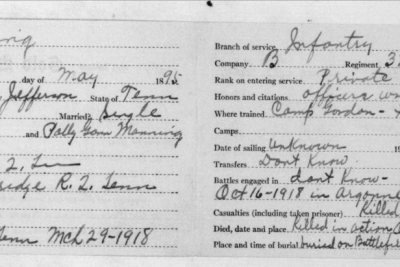 day of May 1895
Jefferson State of Tenn
Married Single
and Polly Gann Manning
R. 2. Tenn
Tenn Mch 29-1918
Branch of service Infantry
Company B Regiment 3
Rank on entering service Private
Honors and citations officers
Where trained Camp Gordon -
Camps
Date of sailing unknown 19
Transfers Dont Know
Battles engaged in dont Know-
Oct 16-1918 in Argonne
Casualties (including taken prisoner) Killed
Died, date and place Killed in action
Place and time of burial buried on Battlefiel